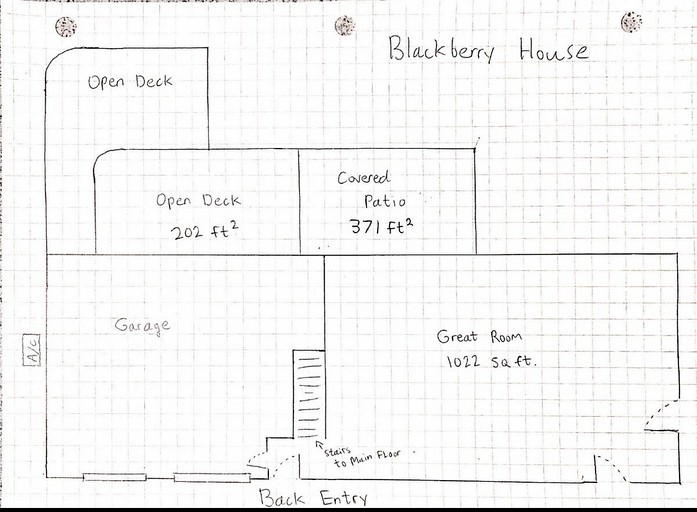 Blackberry House
Open Deck
Open Deck
202 ft²
Covered
Patio
371 ft²
Garage
A/C
Great Room
1022 sq ft.
stairs
to Main Floor
Back Entry